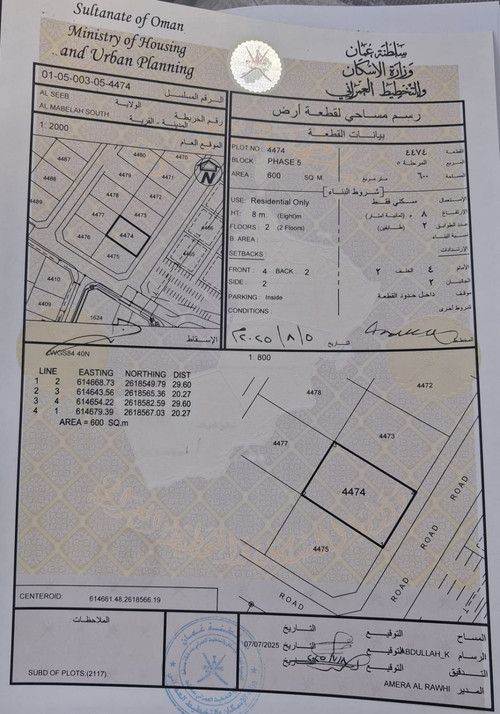 Sultanate of Oman
Ministry of Housing
and Urban Planning
سلطنة عُمان
وزارة الإسكان
والتخطيط العمراني
01-05-003-05-4474
الرقم المسلسل
AL SEEB
الولاية
AL MABELAH SOUTH
المدينة - القرية
رقم الخريطة
1: 2000
الموقع العام
رسم مساحي لقطعة أرض
بيانات القطعة
PLOT NO 4474
٤٤٧٤ القطعة
BLOCK: PHASE 5
المرحلة ٥ المربع
AREA : 600 SQ. M
متر مربع ٦٠٠ المساحة
شروط البناء
USE: Residential Only
سكني فقط الإستعمال
HT: 8 m (Eight)m
٨ (ثمانية أمتار) الإرتفاع
FLOORS : 2 (2 Floors)
٢ (طابقين) عدد الطوابق
B. AREA :
نسبة البناء
SETBACKS :
الإرتدادات
FRONT : 4 BACK : 2
الأمام ٤ الخلف ٢
SIDE : 2
الجانبان ٢
PARKING : Inside
موقف داخل حدود القطعة
CONDITIONS :
شروط أخرى
التاريخ ٢٠٢٥/٨/٥
المخطط
4487
4480
4470
4479
4471
4486
4478
4472
4485
4477
4473
4476
4474
4475
4410
4409
1624
N
الإسقاط
WGS84 40N
1: 800
LINE EASTING NORTHING DIST
1 2 614668.73 2618549.79 29.60
2 3 614643.56 2618565.36 20.27
3 4 614654.22 2618582.59 29.60
4 1 614679.39 2618567.03 20.27
AREA = 600 SQ.m
4472
4478
4473
4477
4474
4475
ROAD
ROAD
ROAD
ROAD
CENTEROID: 614661.48,2618566.19
الملاحظات
SUBD OF PLOTS:(2117).
المساح التوقيع التاريخ
الرسام ABDULLAH_K التوقيع التاريخ 07/07/2025
التدقيق التوقيع التاريخ
المدير AMERA AL RAWHI